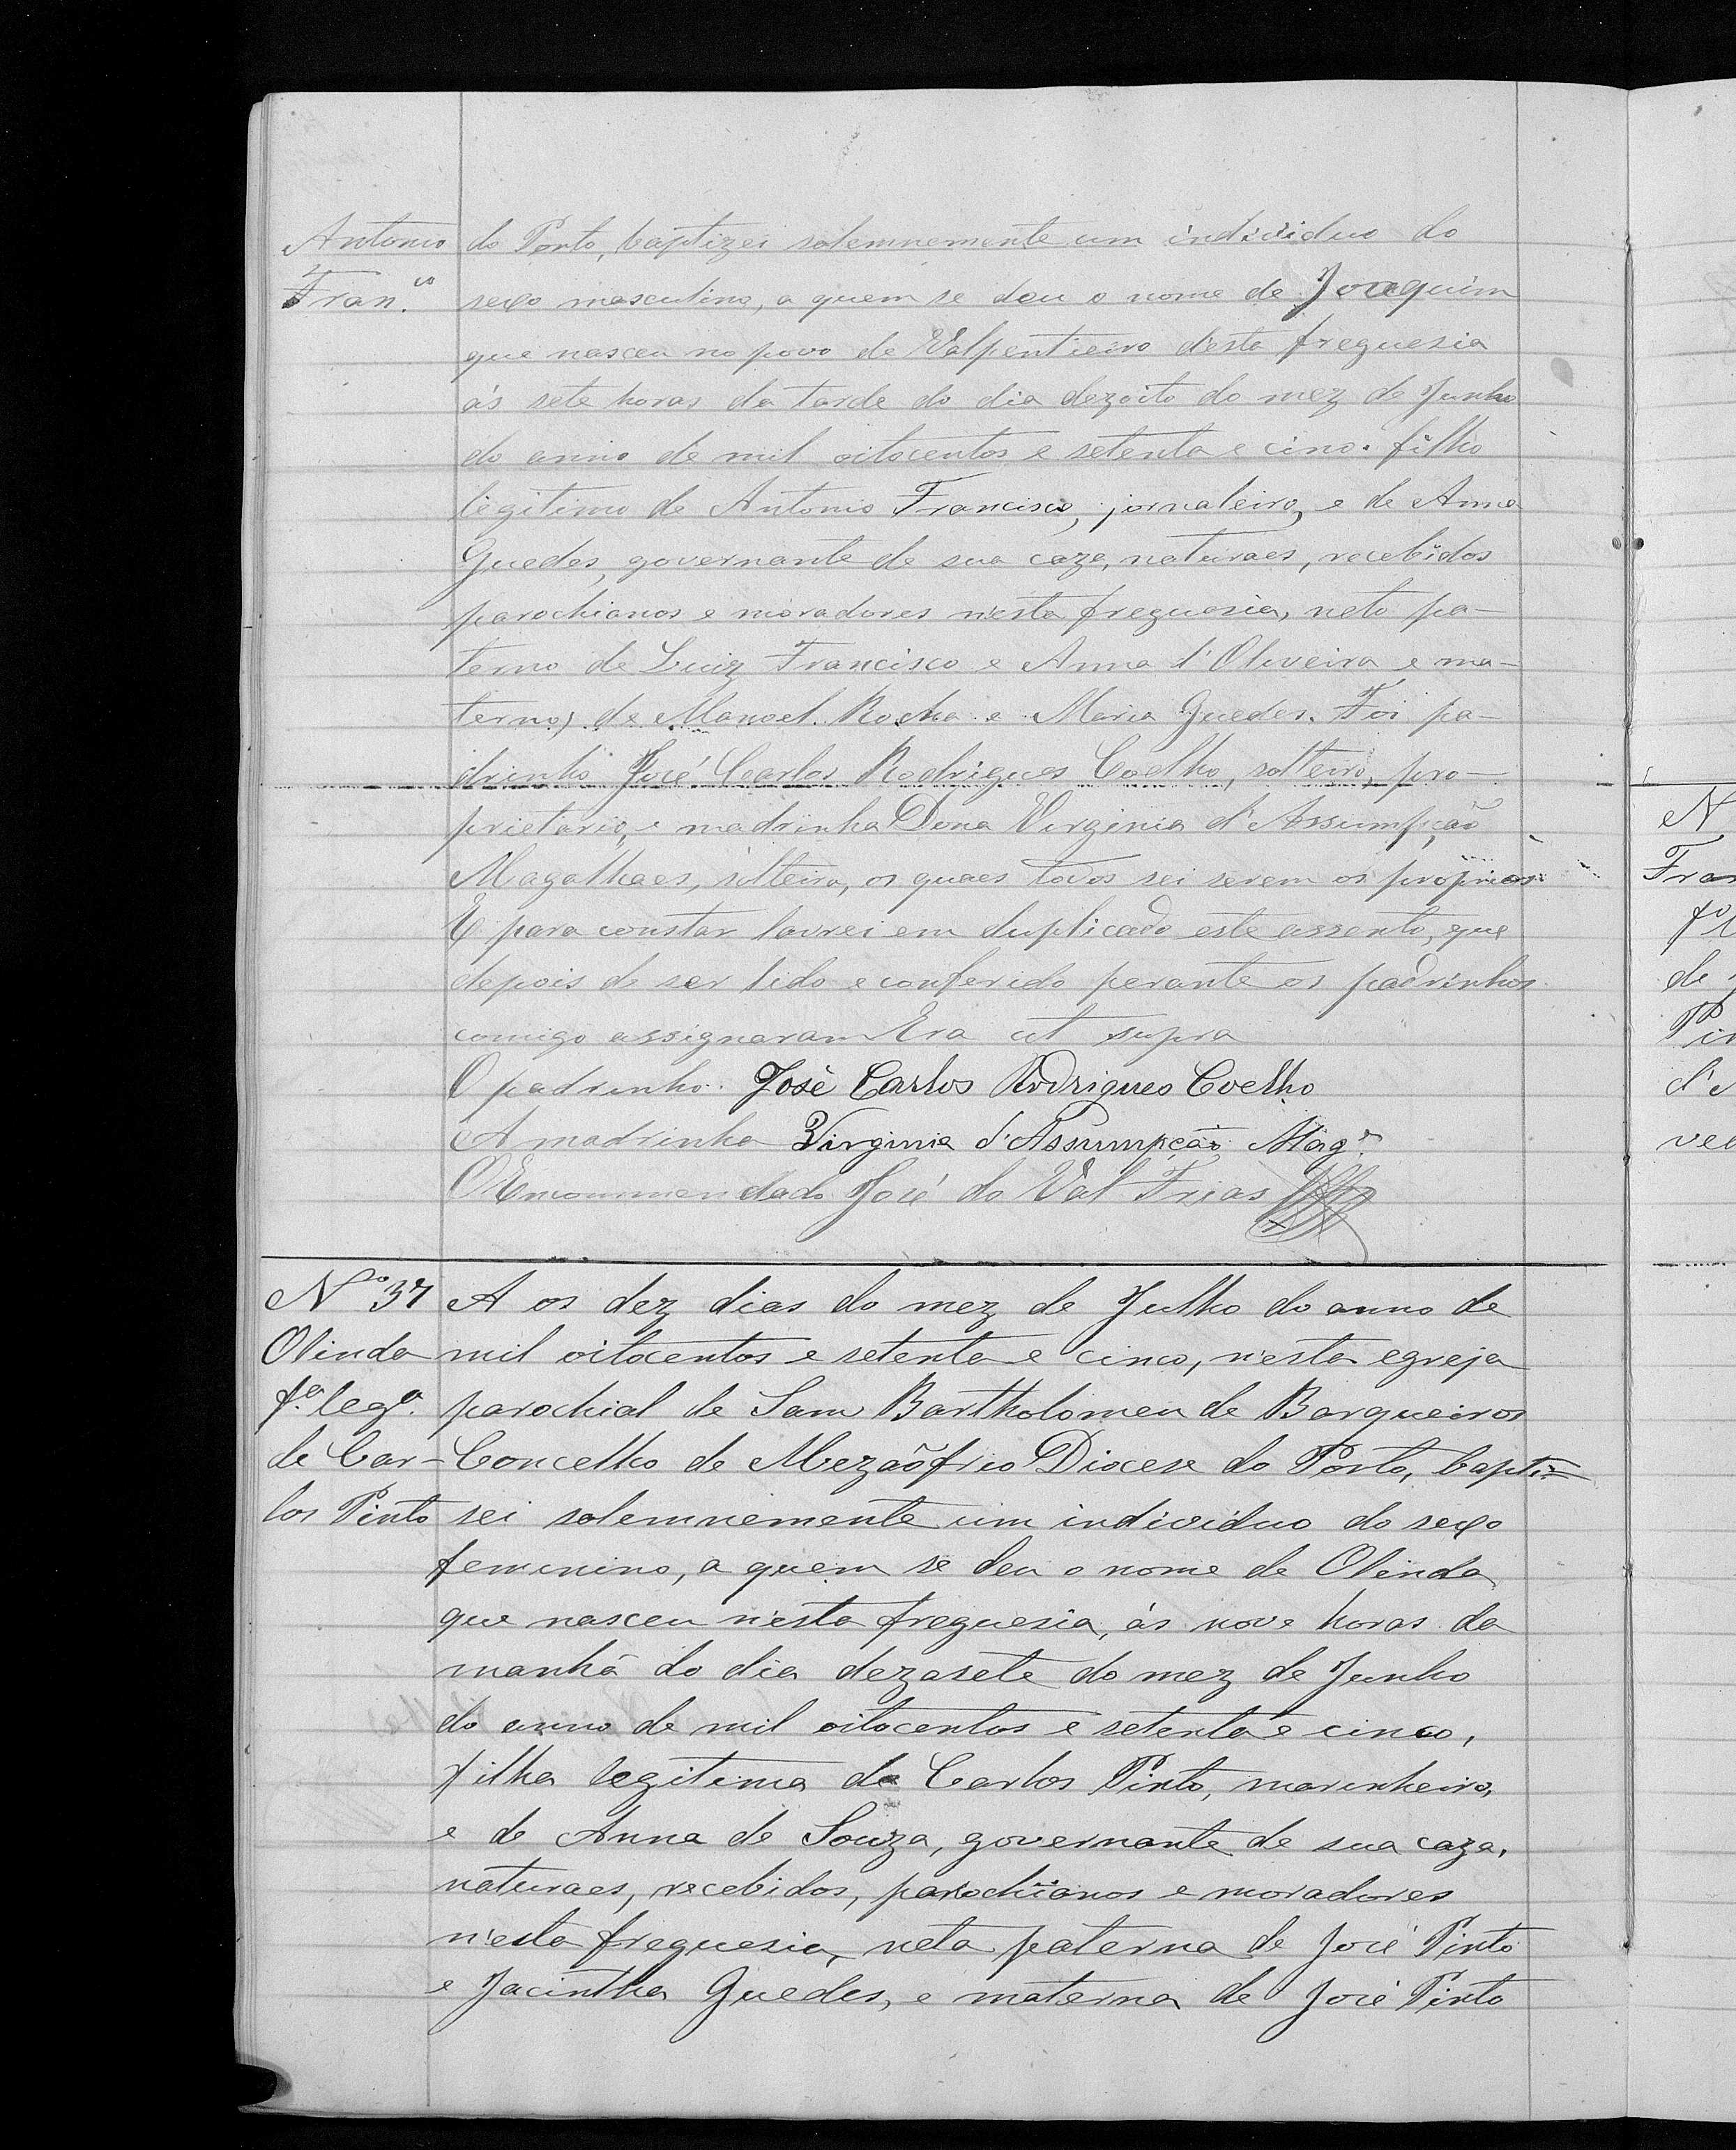 Antonio
Fran.co
do Porto, baptizei solemnemente um individuo do
sexo masculino, a quem se deu o nome de Joaquim
que nasceu no povo de Valpentieiro d'esta freguesia
ás sete horas da tarde do dia dezoito do mez de Junho
do anno de mil oitocentos e setenta e cinco. filho
legitimo de Antonio Francisco, jornaleiro, e de Anna
Guedes, governante de sua caza, naturaes, recebidos
parochianos e moradores n'esta freguesia, neto pa-
terno de Luiz Francisco e Anna d'Oliveira e ma-
terno, de Manoel Rocha e Maria Guedes. Foi pa-
drinho José Carlos Rodrigues Coelho, solteiro, pro-
prietario, e madrinha Dona Virginia d'Assumpção
Magalhaes, solteira, os quaes todos sei serem os proprios
E para constar lavrei em duplicado este assento, que
depois de ser lido e conferido perante os padrinhos
comigo assignaram Era ut supra
O padrinho. José Carlos Rodrigues Coelho
A madrinha Virginia d'Assumpção Mag.es
O Encommendado José do Val Frias
Nº 37
Olinda
f.ª leg.ª
de Car-
los Pinto
A os dez dias do mez de Julho do anno de
mil oitocentos e setenta e cinco, n'esta egreja
parochial de Sam Bartholomeu de Barqueiros
Concelho de Mezãofrio Diocese do Porto, bapti-
sei solemnemente um individuo do sexo
feminino, a quem se deu o nome de Olinda
que nasceu n'esta freguesia, ás nove horas da
manhã do dia dezasete do mez de Junho
do anno de mil oitocentos e setenta e cinco,
filha legitima de Carlos Pinto, marinheiro,
e de Anna de Souza, governante de sua caza,
naturaes, recebidos, parochianos e moradores
n'esta freguesia, neta paterna de José Pinto
e Jacintha Guedes, e materna de José Pinto
N
Fra
de